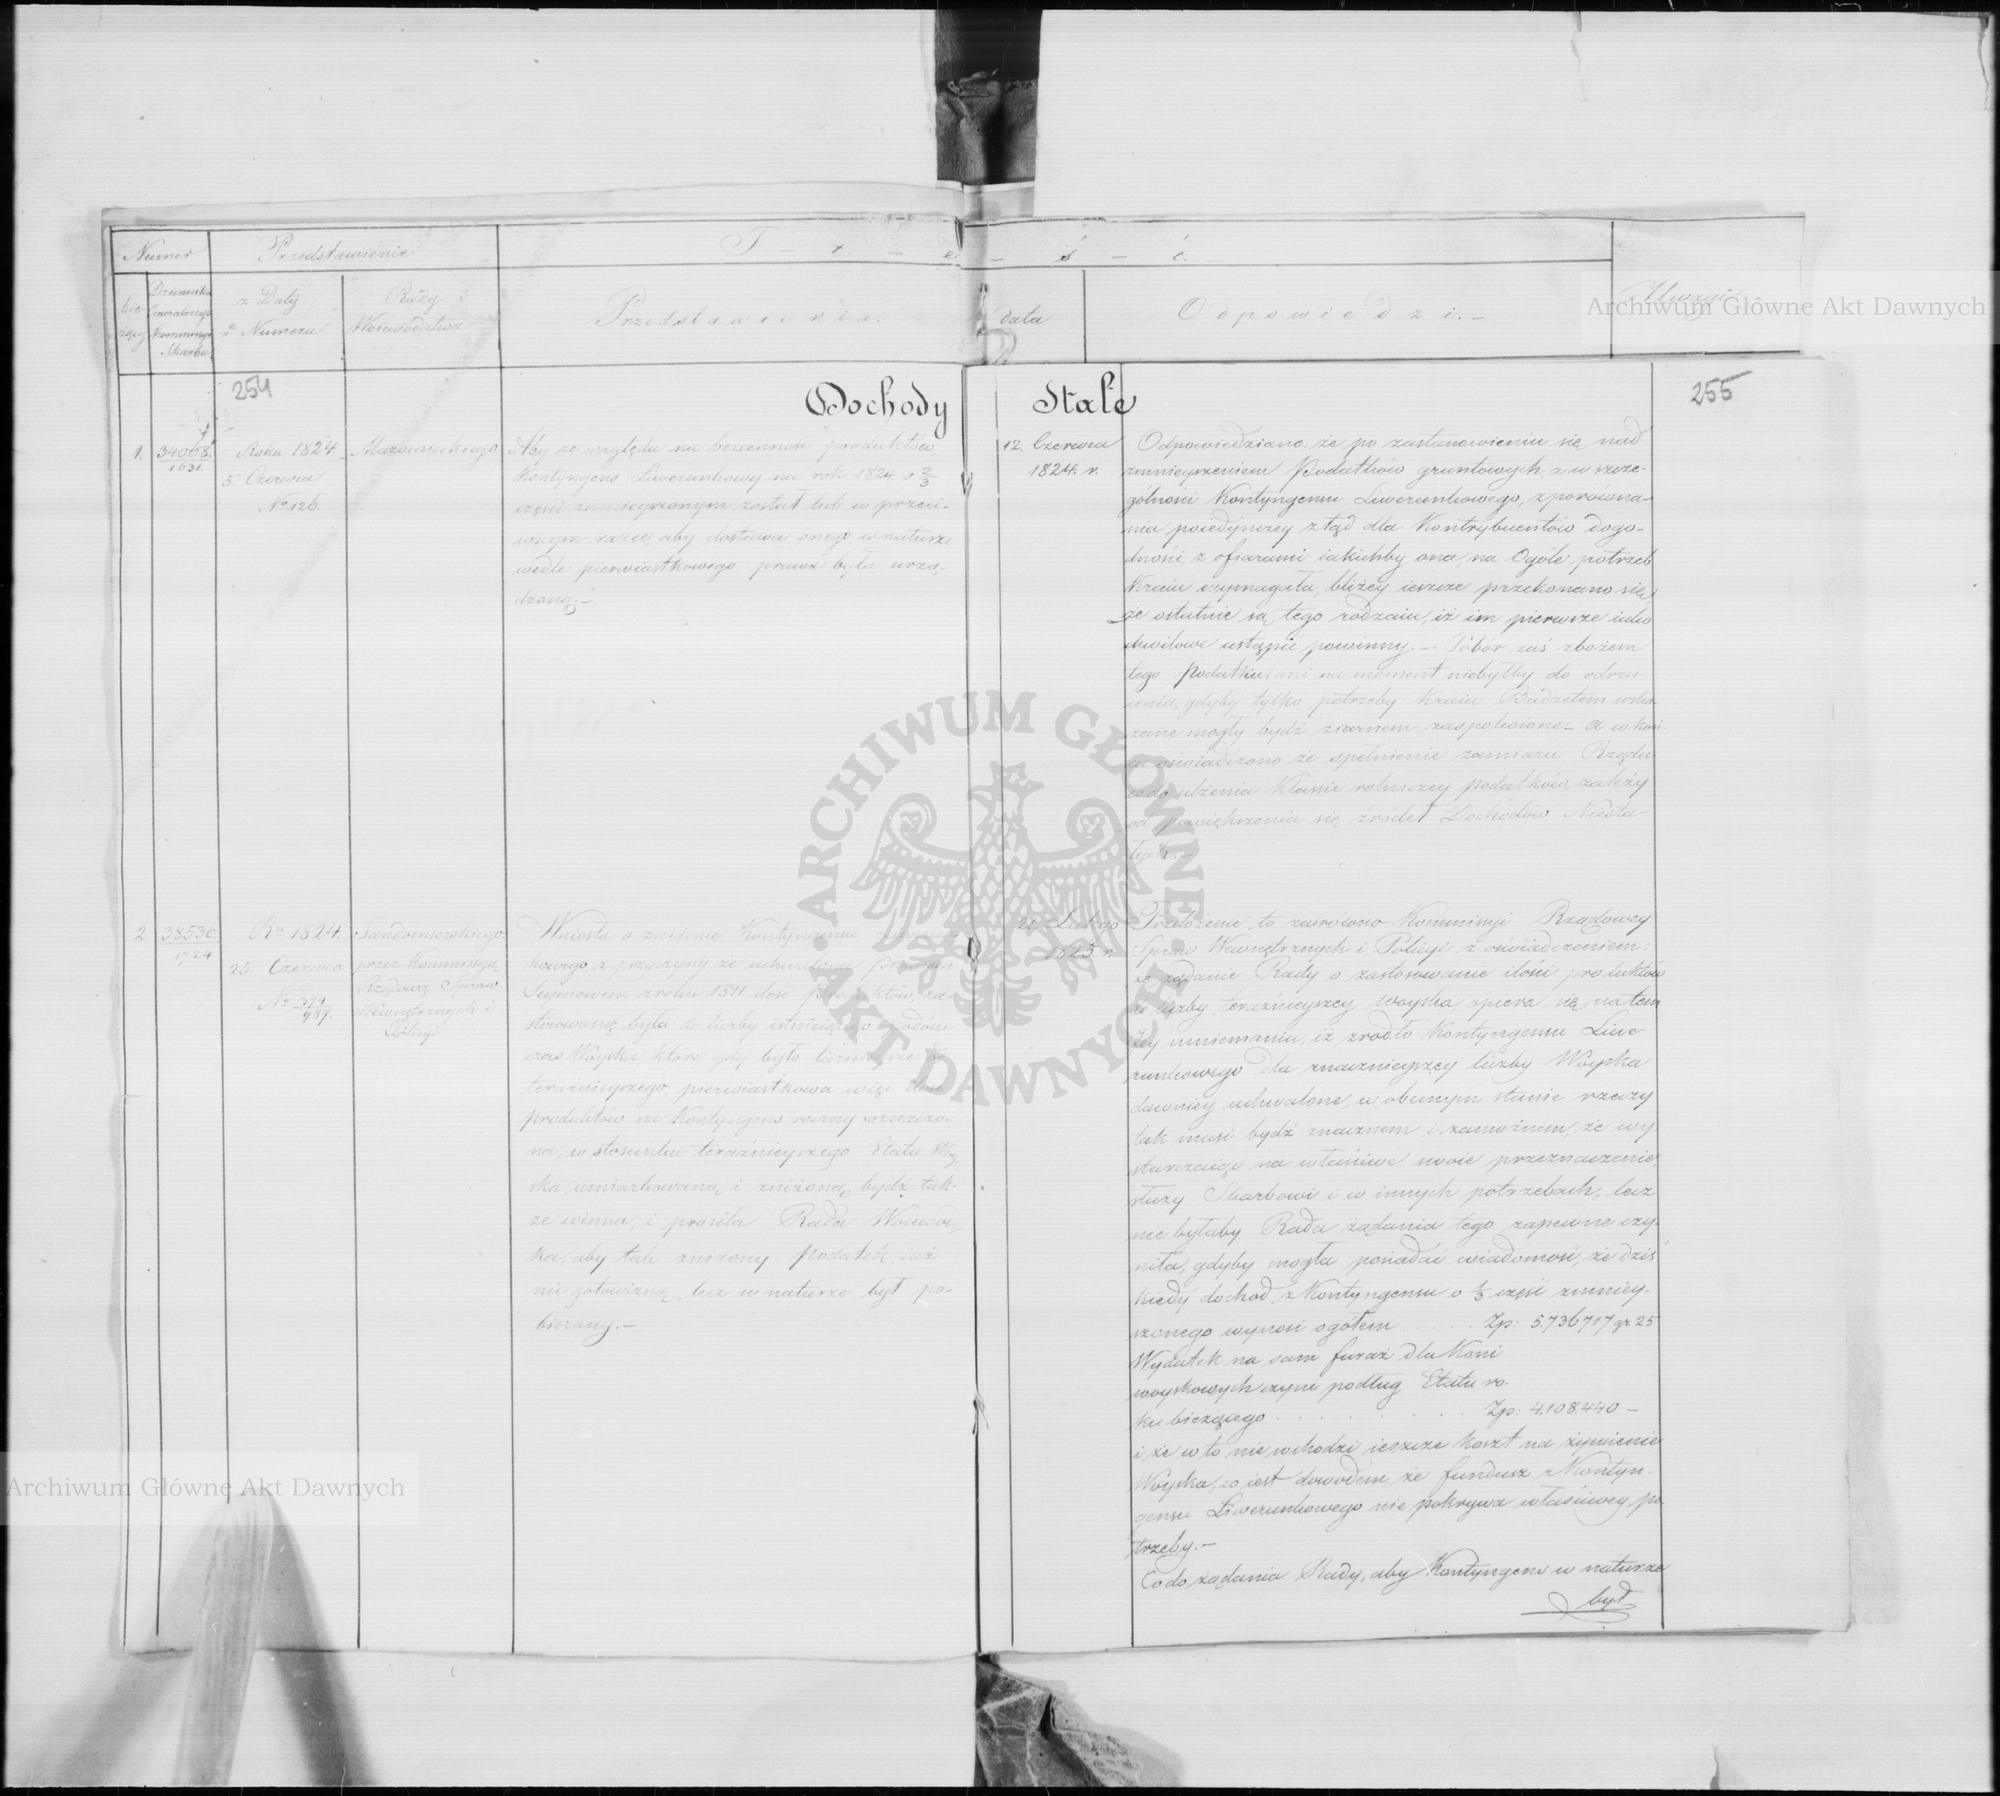 Numer
Przedstawienie
T - r - e - ś - ć. -
Uwagi
Bie-
żący
Dziennika
Generalnego
Kommissyi
Skarbu
z Daty
i Numeru
Rady
Woiewództwa
Przedstawienia.
data
Odpowiedzi. -
254
255
Dochody Stałe
1.
34068.
1631
Roku 1824.
5 Czerwca
No 126.
Mazowieckiego
Aby ze względu na bezcenność produktów,
Kontyngens Liwerunkowy na rok 1824 o 2/3
części zmnieyszonym został lub w przeci-
wnym razie, aby dostawa onego w naturze
wedle pierwiastkowego prawa była urzą-
dzoną.-
12. Czerwca
1824. r.
Odpowiedziano: że po zastanowieniu się nad
zmnieyszeniem Podatków gruntowych a w szcze-
gólności Kontyngensu Liwerunkowego, z porówna-
nia poiedyńczey ztąd dla Kontrybuentów dogo-
dności, z ofiarami iakichby ona, na Ogóle potrzeb
Kraiu wymagała, bliżey ieszcze przekonano się,
że ostatnie są tego rodzaiu, iż im pierwsze iako
chwilowe ustąpić powinny.- Pobór zaś zbożem
tego Podatku, ani na moment niebyłby do odrzu-
cenia, gdyby tylko potrzeby Kraiu Budżetem wska-
zane mogły bydź ziarnem zaspokoione - a w koń-
cu oświadczono że spełnienie zamiaru Rządu
co do ulżenia Klassie rolniczey podatków, zależy
od powiększenia się źródeł Dochodów Niesta-
łych.-
2
38536.
1724
Ru 1824.
25. Czerwca
No 374/987.
Sandomierskiego.
przez Kommissyą
Rządową Spraw
Wewnętrznych i
Policyi
Wniosła o zniżenie Kontyngensu
kowego, z przyczyny że uchwalona Prawem
Seymowem z roku 1811 ilość Produktów, za-
stosowaną była do liczby istnieiącego wpodów-
czas Woyska, które gdy było licznieysze od
teraźnieyszego, pierwiastkowa więc ilość
produktów na Kontyngens roczny oznaczo-
na, w stosunku teraźnieyszego Etatu Woy-
ska, umiarkowaną i zniżoną bydź tak-
że winna, i prosiła Rada Woiewódz-
ka, aby tak zniżony podatek, iuż
nie gotowizną, lecz w naturze był po-
bierany.-
21 Lutego
1825. r.
Przełożenie to zwrócono Kommissyi Rządowey
Spraw Wewnętrznych i Policyi z oświadczeniem:
że żądanie Rady o zastosowanie ilości produktów
do liczby teraźnieyszey woyska, opiera się na tem
Jey mniemaniu, iż zrodło Kontyngensu Liwe-
runkowego dla znacznieyszey liczby Woyska
dawniey uchwalone, w obecnym stanie rzeczy
tak musi bydź znacznem i zamożnem, że wy-
starczaiąc na właściwe swoie przeznaczenie,
służy Skarbowi i w innych potrzebach, lecz
nie byłaby Rada żądania tego zapewne czy-
niła, gdyby mogła posiadać wiadomość, że dziś
kiedy dochód z Kontyngensu o 1/3 część zmniey-
szonego wynosi ogółem . . . . . Zp: 5.736717 gr 25
Wydatek na sam furaż dla Koni
woyskowych czyni podług Etatu ro-
ku bieżącego . . . . . . . Zp: 4.108.440 -
i że w to nie wchodzi ieszcze koszt na żywienie
Woyska, co iest dowodem, że fundusz z Kontyn-
gensu Liwerunkowego nie pokrywa właściwey po-
trzeby.-
Co do żądania Rady, aby Kontyngens w naturze
był
Archiwum Główne Akt Dawnych
Archiwum Główne Akt Dawnych
ARCHIWUM GŁÓWNE AKT DAWNYCH